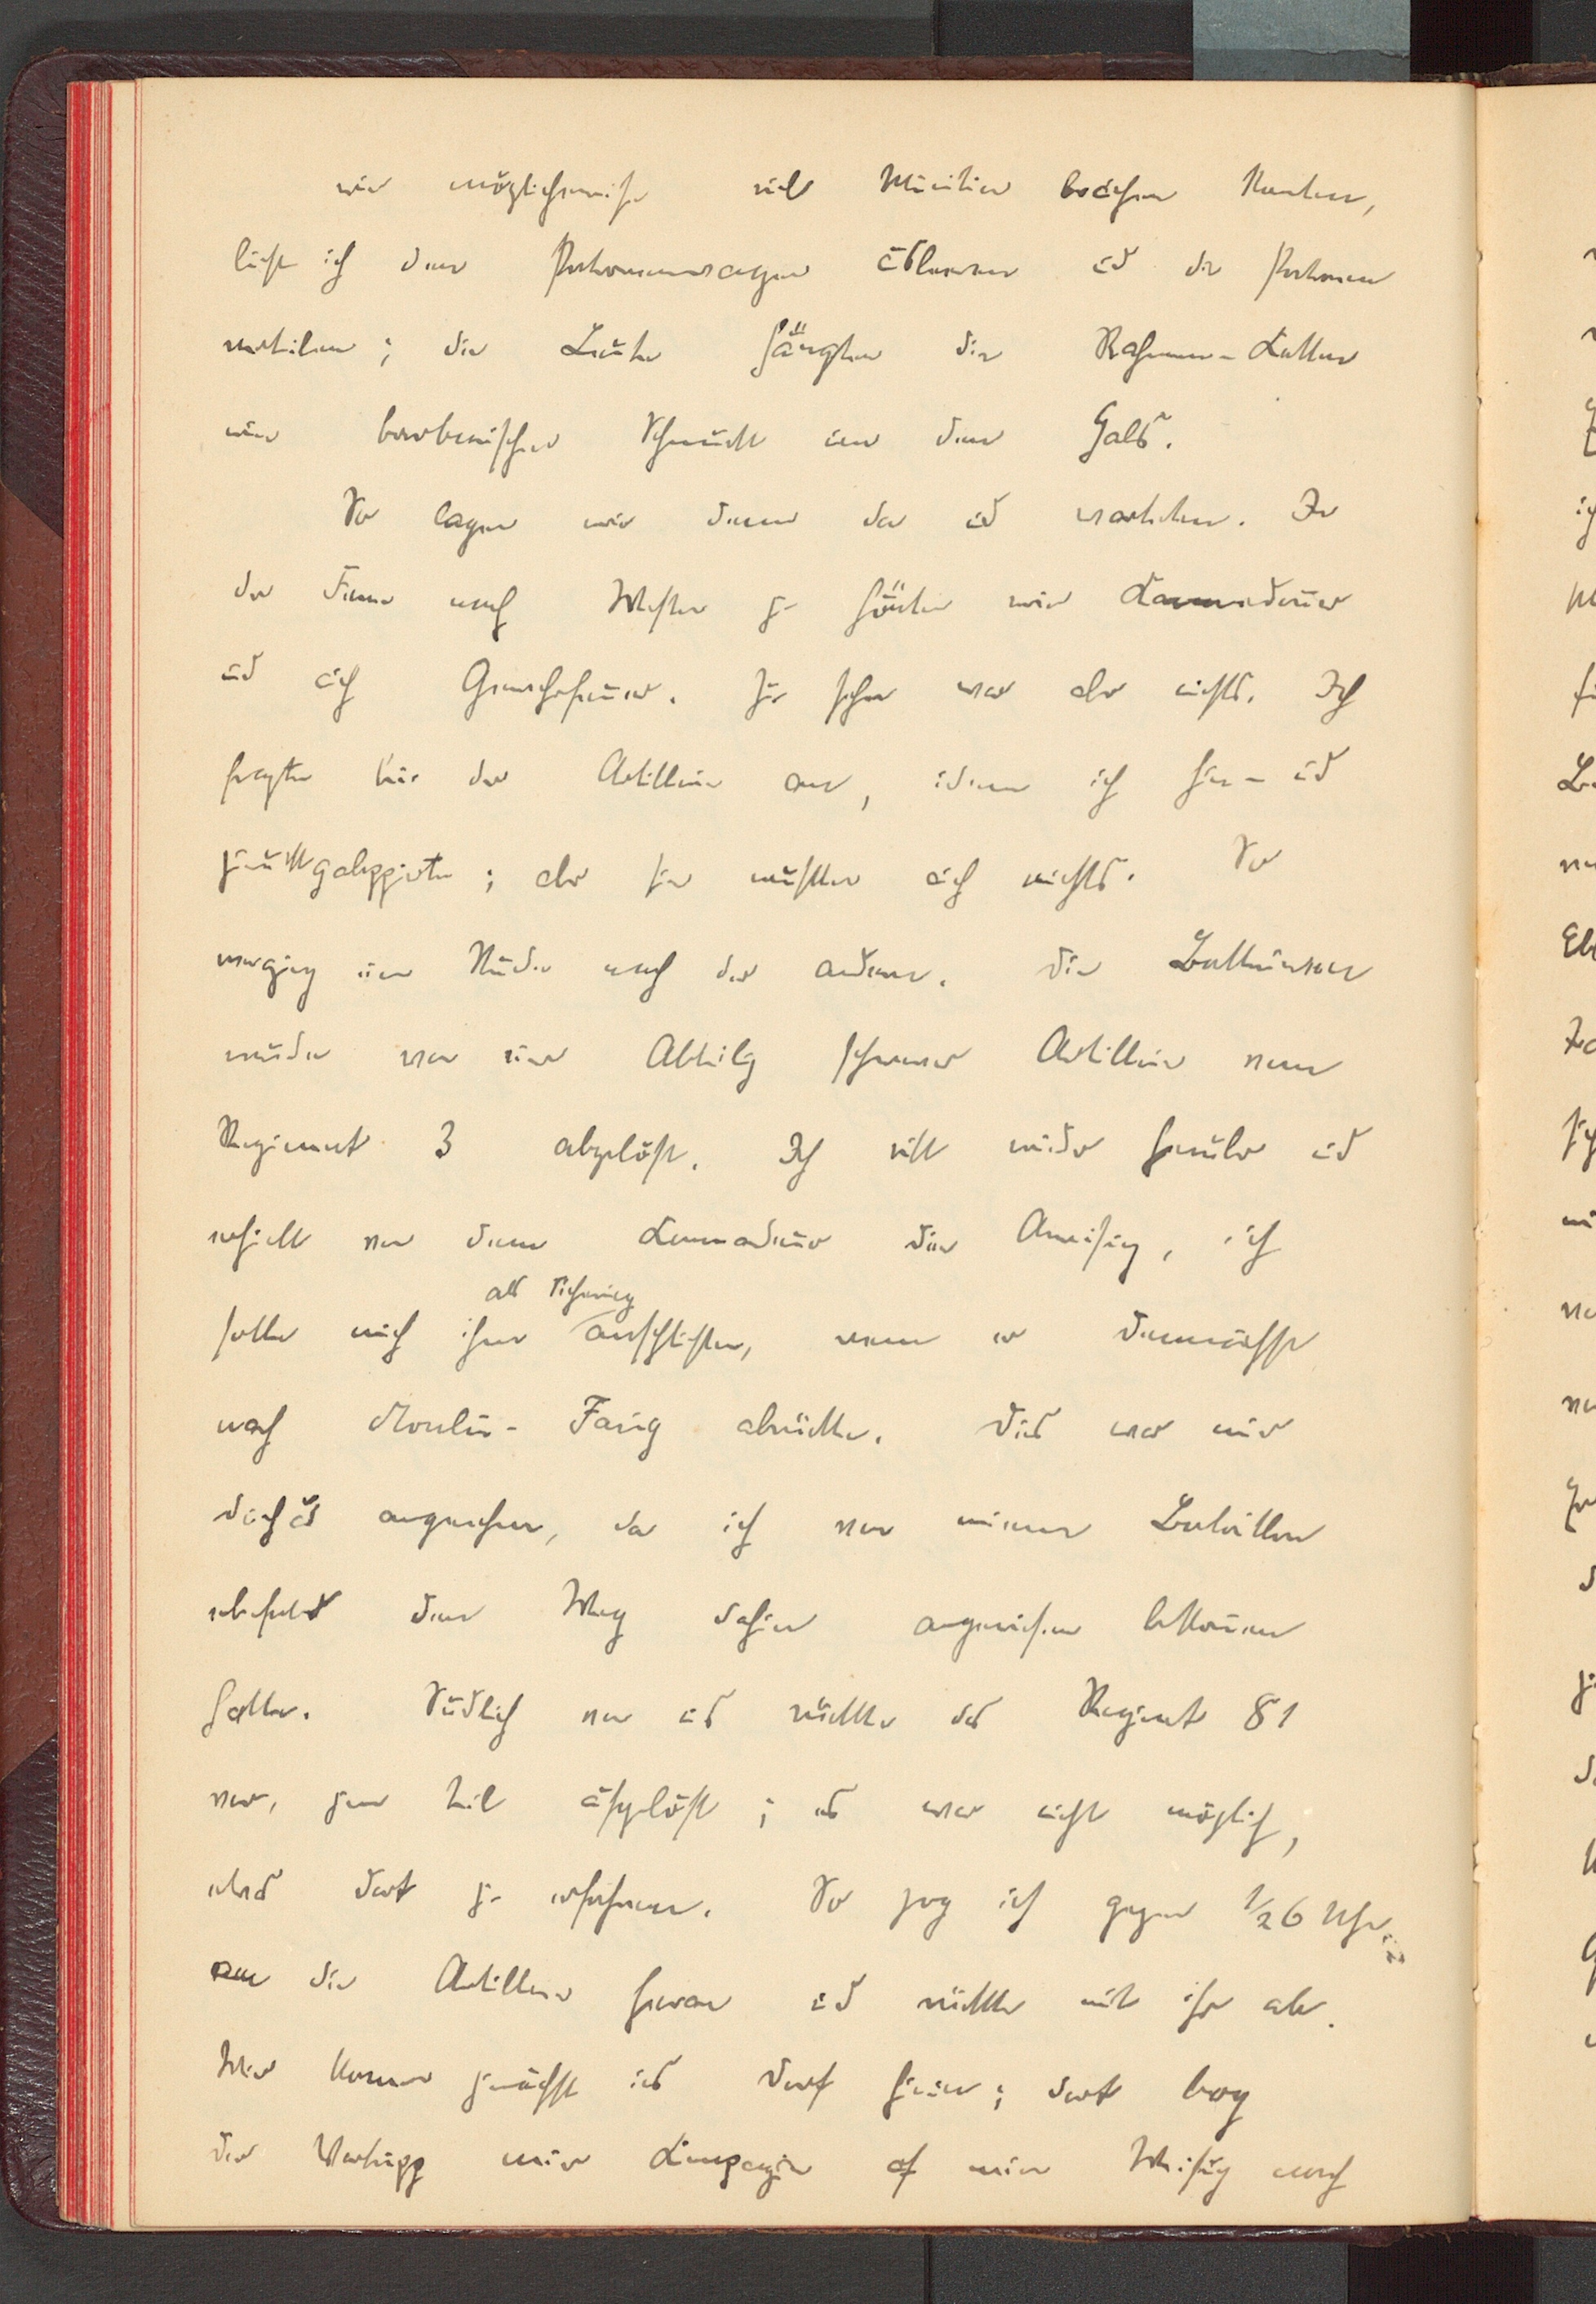 wir möglicherweise viel Munition brauchen konnten,
ließ ich den Patronenwagen ausleeren und die Patronen
verteilen; die Leute hängten die Rahmen-Ketten
wie barbarischen Schmuck um den Hals.
So lagen wir denn da und warteten. In
der Ferne nach Westen zu hörten wir Kanonendonner
und auch Gewehrfeuer. Zu sehen war aber nichts. Ich
fragte bei der Artillerie an, indem ich hin- und
zurückgaloppierte; aber sie wußten auch nichts. So
verging eine Stunde nach der andern. Die Batterien
wurden von einer Abteilung schwerer Artillerie vom
Regiment 3 abgelöst. Ich ritt wieder herüber und
erhielt von dem Kommandeur die Anweisung, ich
als Sicherung
solle mich ihm anschließen, wenn er demnächst
nach Moulin- abrückte. Dies war mir
durchaus angenehm, da ich von meinem Bataillon
ebenfalls den Weg dahin angewiesen bekommen
hatte. Südlich von uns rückte das Regiment 81
vor, zum Teil aufgelöst; es war nicht möglich,
etwas dort zu erfahren. So zog ich gegen 1/26 Uhr
an die Artillerie heran und rückte mit ihr ab.
Wir kamen zunächst ins Dorf hinein; dort bog
der meiner Kompagnie auf meine Weisung nach